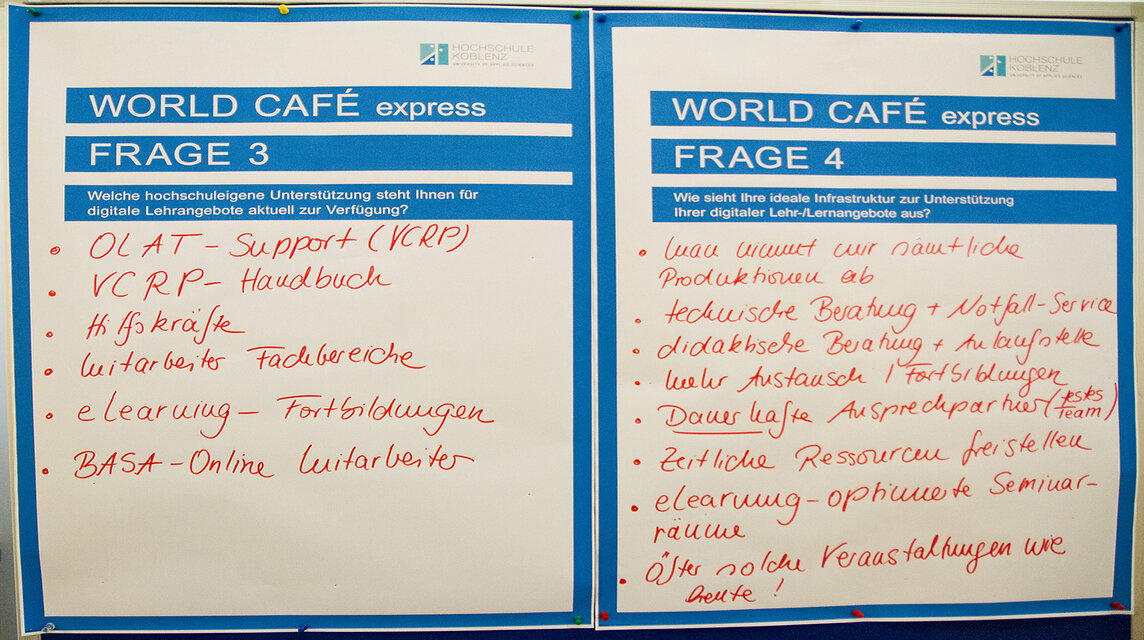 HOCHSCHULE
KOBLENZ
UNIVERSITY OF APPLIED SCIENCES
WORLD CAFÉ express
FRAGE 3
Welche hochschuleigene Unterstützung steht Ihnen für
digitale Lehrangebote aktuell zur Verfügung?
• OLAT - Support (VCRP)
• VCRP - Handbuch
• Hilfskräfte
• Mitarbeiter Fachbereiche
• eLearning - Fortbildungen
• BASA - Online Mitarbeiter
HOCHSCHULE
KOBLENZ
UNIVERSITY OF APPLIED SCIENCES
WORLD CAFÉ express
FRAGE 4
Wie sieht Ihre ideale Infrastruktur zur Unterstützung
Ihrer digitaler Lehr-/Lernangebote aus?
• man nimmt mir sämtliche
Produktionen ab
• technische Beratung + Notfall-Service
• didaktische Beratung + Anlaufstelle
• mehr Austausch / Fortbildungen
• Dauerhafte Ansprechpartner (festes
Team)
• Zeitliche Ressourcen freistellen
• eLearning - optimierte Seminar-
räume
• Öfter solche Veranstaltungen wie
heute !